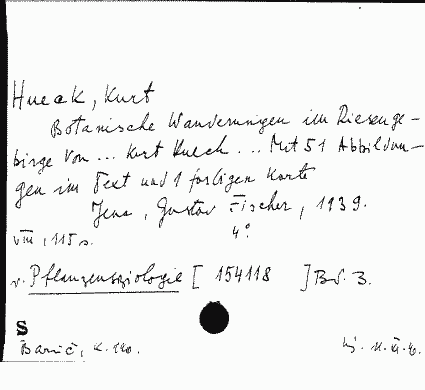 Hueck, Kurt
Botanische Wanderungen im Riesenge-
birge von ... Kurt Hueck ... Mit 51 Abbildun-
gen im Text und 1 farbigen Karte
Jena, Gustav Fischer, 1939.
VIII, 115 s. 4°
v. Pflanzensoziologie [ 154118 ] Bd. 3.
S
Barić, K. 140.